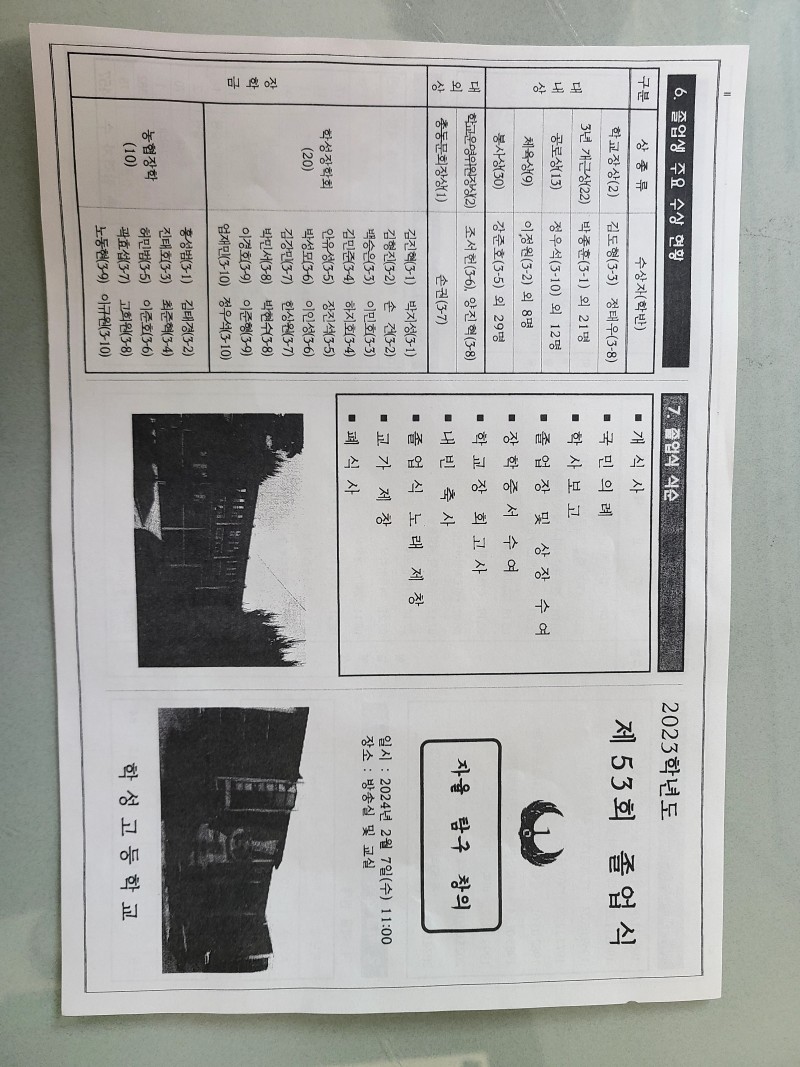 6. 졸업생 주요 수상 현황
구분 상 종 류 수상자(학반)
대내상
학교장상(2) 김도형(3-3) 정태우(3-8)
3년 개근상(22) 박종훈(3-1) 외 21명
공로상(13) 정우석(3-10) 외 12명
체육상(9) 이정원(3-2) 외 8명
봉사상(30) 강준호(3-5) 외 29명
대외상
학교운영위원장상(2) 조서헌(3-6), 양진혁(3-8)
총동문회장상(1) 손권(3-7)
장학금
학성장학회
(20)
김진혁(3-1) 박지성(3-1)
김형진(3-2) 손 건(3-2)
백승은(3-3) 이민호(3-3)
김민준(3-4) 하지호(3-4)
안유성(3-5) 장진석(3-5)
박성모(3-6) 이인성(3-6)
김강민(3-7) 한상원(3-7)
박민서(3-8) 박현수(3-8)
이경호(3-9) 이준형(3-9)
엄재민(3-10) 정우석(3-10)
농협장학
(10)
홍성범(3-1) 김태경(3-2)
진태호(3-3) 최준혁(3-4)
허민범(3-5) 이준호(3-6)
곽효섭(3-7) 고희원(3-8)
노동현(3-9) 이규원(3-10)
7. 졸업식 식순
■ 개 식 사
■ 국 민 의 례
■ 학 사 보 고
■ 졸 업 장 및 상 장 수 여
■ 장 학 증 서 수 여
■ 학 교 장 회 고 사
■ 내 빈 축 사
■ 졸 업 식 노 래 제 창
■ 교 가 제 창
■ 폐 식 사
2023학년도
제 53회 졸업식
자율 탐구 창의
일시 : 2024년 2월 7일(수) 11:00
장소 : 방송실 및 교실
학 성 고 등 학 교